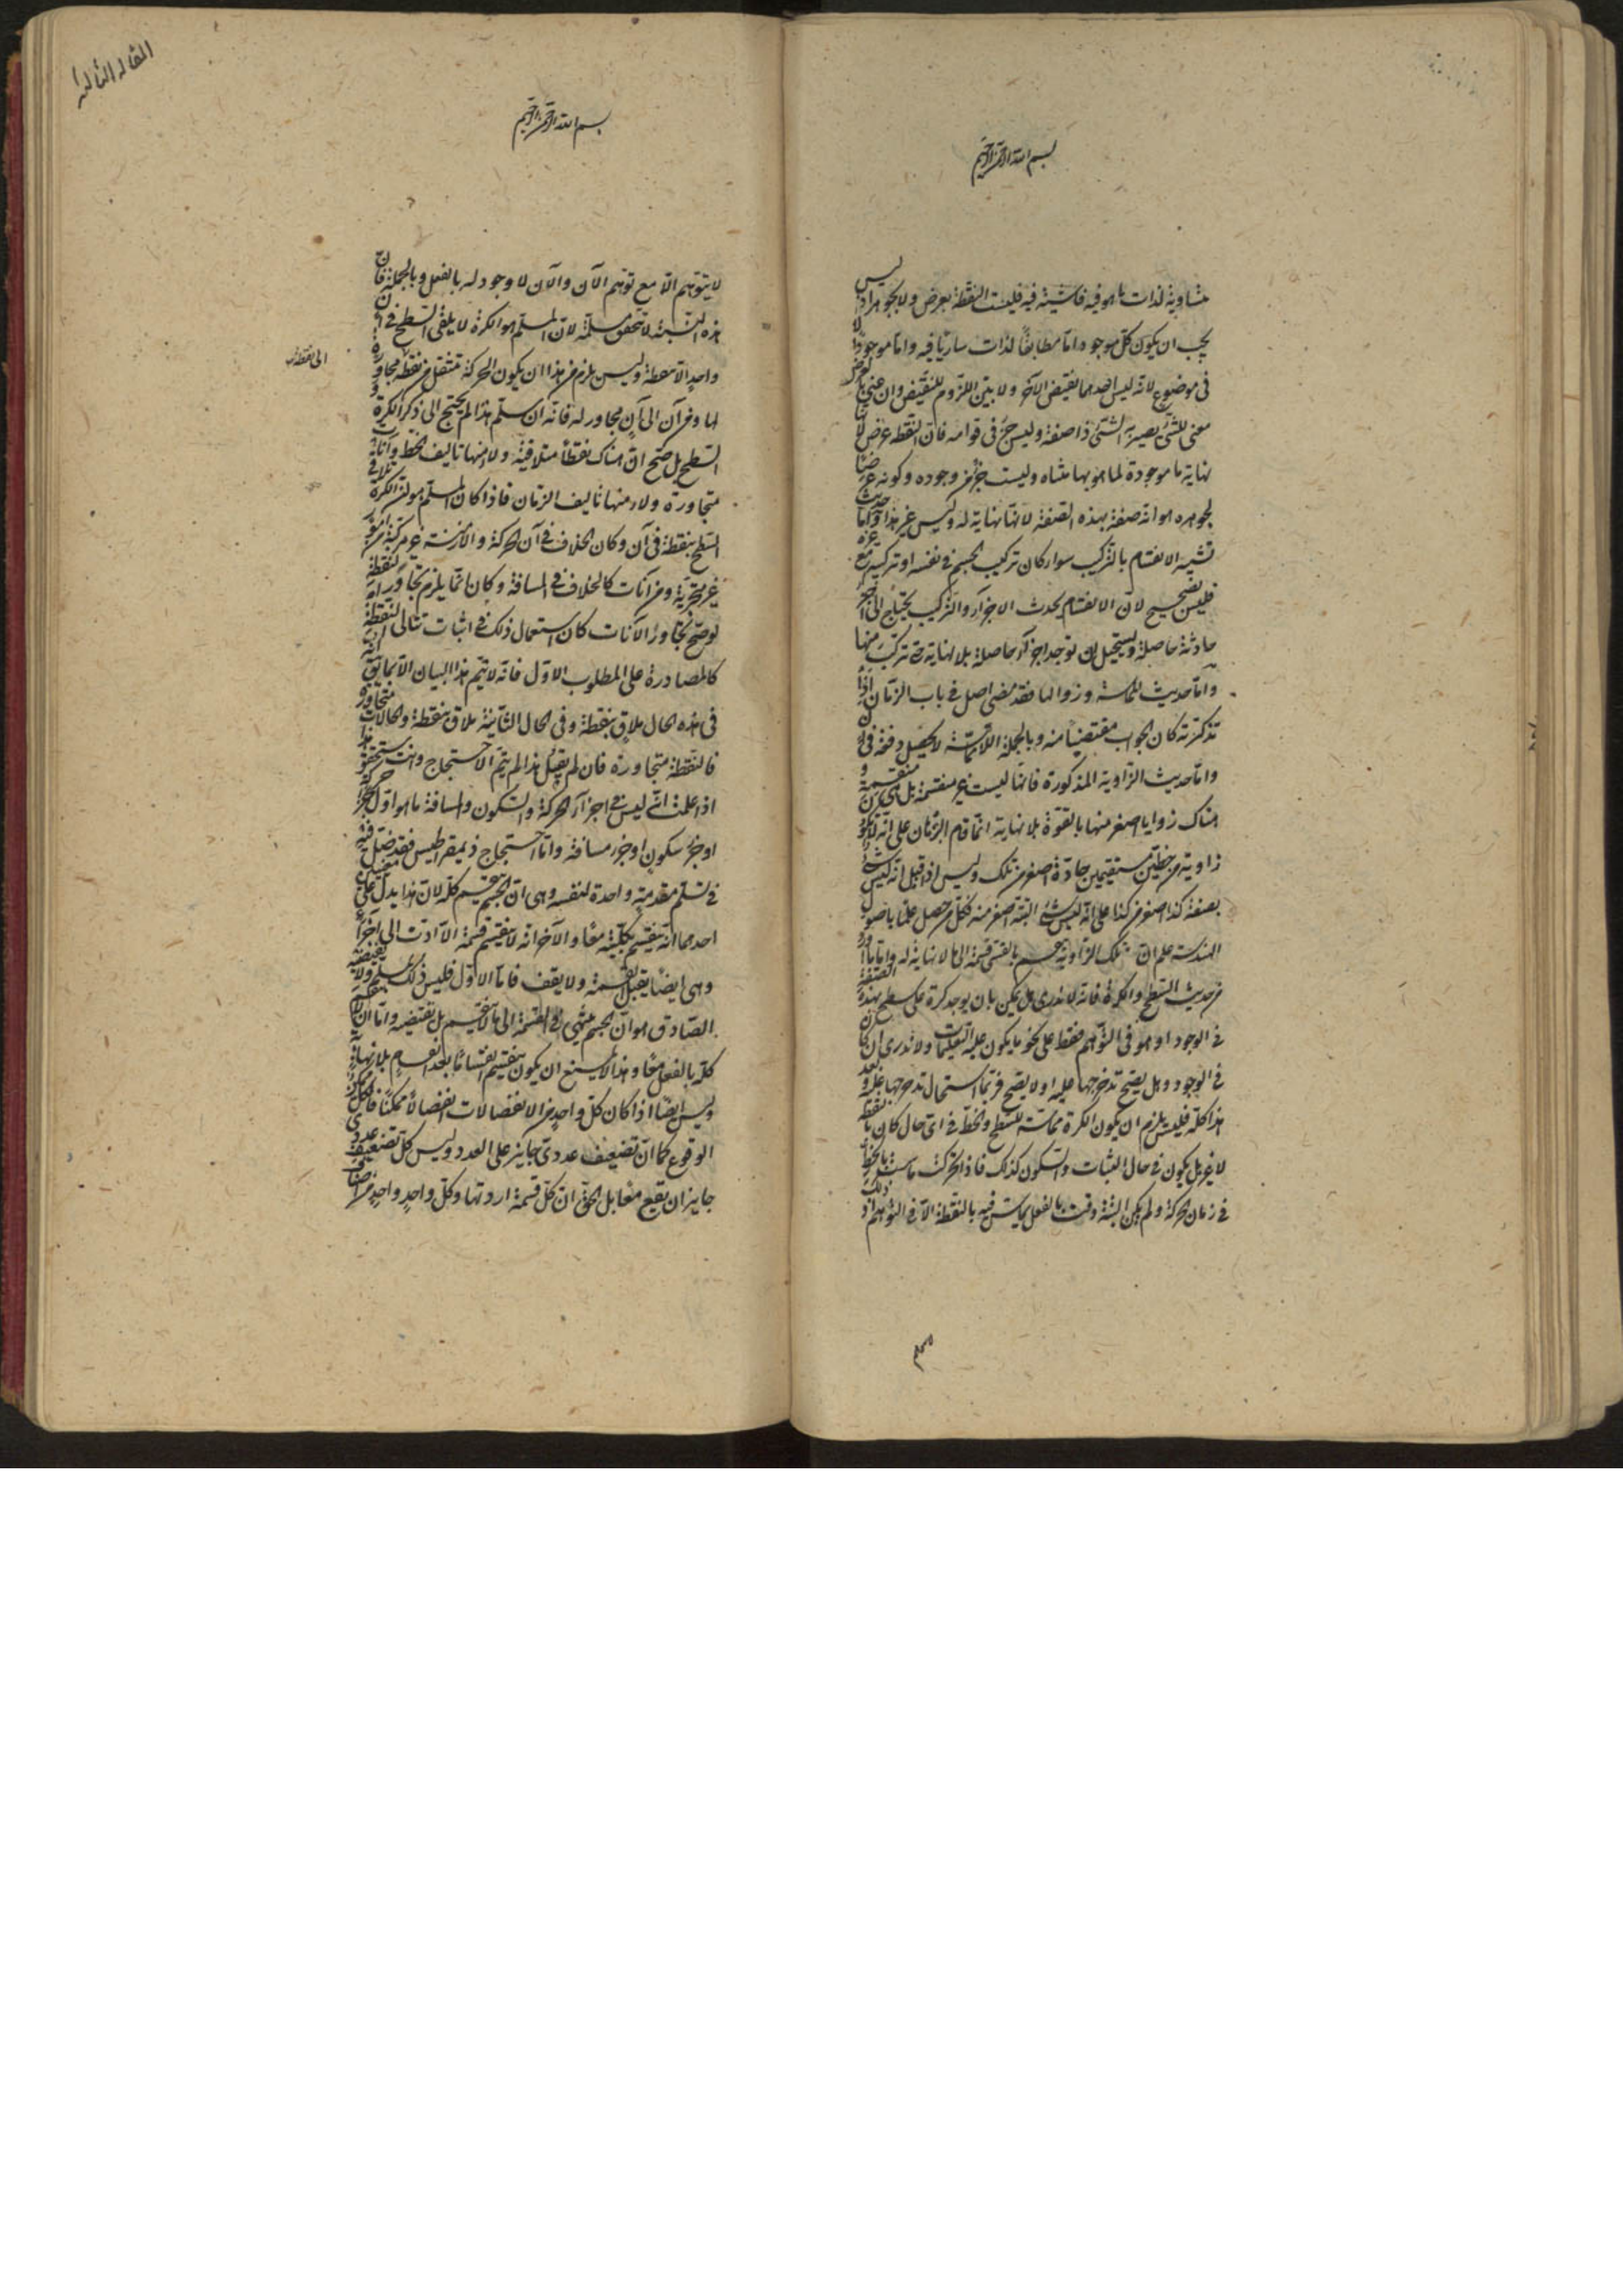 بسم الله الرحمن الرحيم
متساوية لذات ما هو فيه فاشية فيه فليست النقطة بعرض ولا بجوهر اذ ليس
يجب ان يكون كل موجود اما مطابقا لذات ساريا فيه واما موجودا لا
فى موضوع لانه ليس احدهما نقيض الآخر ولا بين اللزوم للنقيض وان عنى بالعرض
معنى للشئ يصير به الشئ ذا صفة وليس جزء فى قوامه فان النقطة عرض لانها
نهاية ما موجودة لما هو بها متناه وليست جزء من وجوده وكونه عرضا
لجوهره هو انه صفة بهذه الصفة لانها نهاية له وليس غير هذا واما حديث
تشبيه الانقسام بالتركيب سواء كان تركيب الجسم فى نفسه او تركيبه مع غيره
فليس بصحيح لان الانقسام يحدث الاجزاء والتركيب يحتاج الى اجزاء
حادثة حاصلة ويستحيل ان توجد اجزاء حاصلة بلا نهاية حتى تركب منها
واما حديث المماسة وزوالها فقد مضى اصل فى باب الزمان اذا
تذكرته كان الجواب مقتضيا منه وبالجملة اللامماسة لا تحصل دفعة فى آن
واما حديث الزاوية المذكورة فانها ليست غير منقسمة بل هى منقسمة و
هناك زوايا اصغر منها بالقوة بلا نهاية انما قام البرهان على انه لا يكون
زاوية من خطين مستقيمين حادة اصغر من تلك وليس اذا قيل انه ليس شئ
بصفة كذا اصغر من كذا على انه ليس شئ البتة اصغر منه فكل من حصل علما باصول
الهندسة علم ان تلك الزاوية تنقسم بالقسى قسمة الى ما لا نهاية له واما ما
من حديث السطح والكرة فانه لا ندرى هل يمكن بان يوجد كرة على سطح بهذه الصفة
فى الوجود او هو فى التوهم فقط على نحو ما يكون عليه التعليميات ولا ندرى ان كان
فى الوجود وهل يصح تدحرجها عليه او لا يصح فربما استحال تدحرجها عليه
هذا كله فليس يلزم ان يكون الكرة مماسة للسطح والخط فى اى حال كان بالنقطة
لا غير بل يكون فى حال الثبات والسكون كذلك فاذا تحركت ماست بالخط
فى زمان الحركة ولم يكن البتة وقت بالفعل يماس فيه بالنقطة الا فى التوهم اذ ذلك
المقالة الثالثة
بسم الله الرحمن الرحيم
لا يتوهم الا مع توهم الآن والآن لا وجود له بالفعل وبالجملة فان
هذه المسئلة لا تتحقق مسلمة لان المسلم هو الكرة لا يلقى السطح فى آن
واحد الا بنقطة وليس يلزم من هذا ان يكون الحركة تنتقل من نقطة مجاورة
الى نقطة
لها ومن آن الى آن مجاور له فانه ان سلم هذا لم يحتج الى ذكر الكرة و
السطح بل صح ان هناك نقطا متلاقية ولاء منها تاليف الخط وآنات
متجاورة ولاء منها تاليف الزمان فاذا كان المسلم هو ان الكرة تلاقى
السطح بنقطة فى آن وكان الخلاف فى ان الحركة والازمنة غير مركبة من امور
غير متجزية ومن آنات كالخلاف فى المسافة وكان انما يلزم تجاور النقطة
لو صح تجاور الآنات كان استعمال ذلك فى اثبات تتالى النقطة
كالمصادرة على المطلوب الاول فانه لا يتم هذا البيان الا بما يق انه
فى هذه الحال ملاق بنقطة وفى الحال الثانية ملاق بنقطة والحالات متجاورة
فالنقطة متجاورة فان لم يقبل هذا لم يتم الاحتجاج وانت ستتحقق هذا
اذا علمت انه ليس فى اجزاء الحركة والسكون والمسافة ما هو اول جزء حركة
او جزء سكون او جزء مسافة واما احتجاج ذيمقراطيس فقد ضل فيه
فى تسلم مقدمة واحدة لنفسه وهى ان الجسم ينقسم كله لان هذا يدل على معنيين
احدهما انه ينقسم بكليته معا والآخر انه لا ينقسم قسمة الا ادت الى اجزاء
وهى ايضا يقبل القسمة ولا يقف فاما الاول فليس ذلك بمسلم ولا نقيضه
الصادق هو ان الجسم ينتهى فى القسمة الى ما لا ينقسم بل نقيضه واما ان لا ينقسم
كله بالفعل معا وهذا لا يمنع ان يكون ينقسم انقساما بعد انقسام بلا نهاية
وليس ايضا اذا كان كل واحد من الانفصالات انفصالا ممكنا فالكل ممكن
الوقوع كما ان تضعيف عددى جايز على العدد وليس كل تضعيف عددى
جايز ان يقع معا بل الحق ان كل قسمة اردتها وكل واحد واحد من اصناف